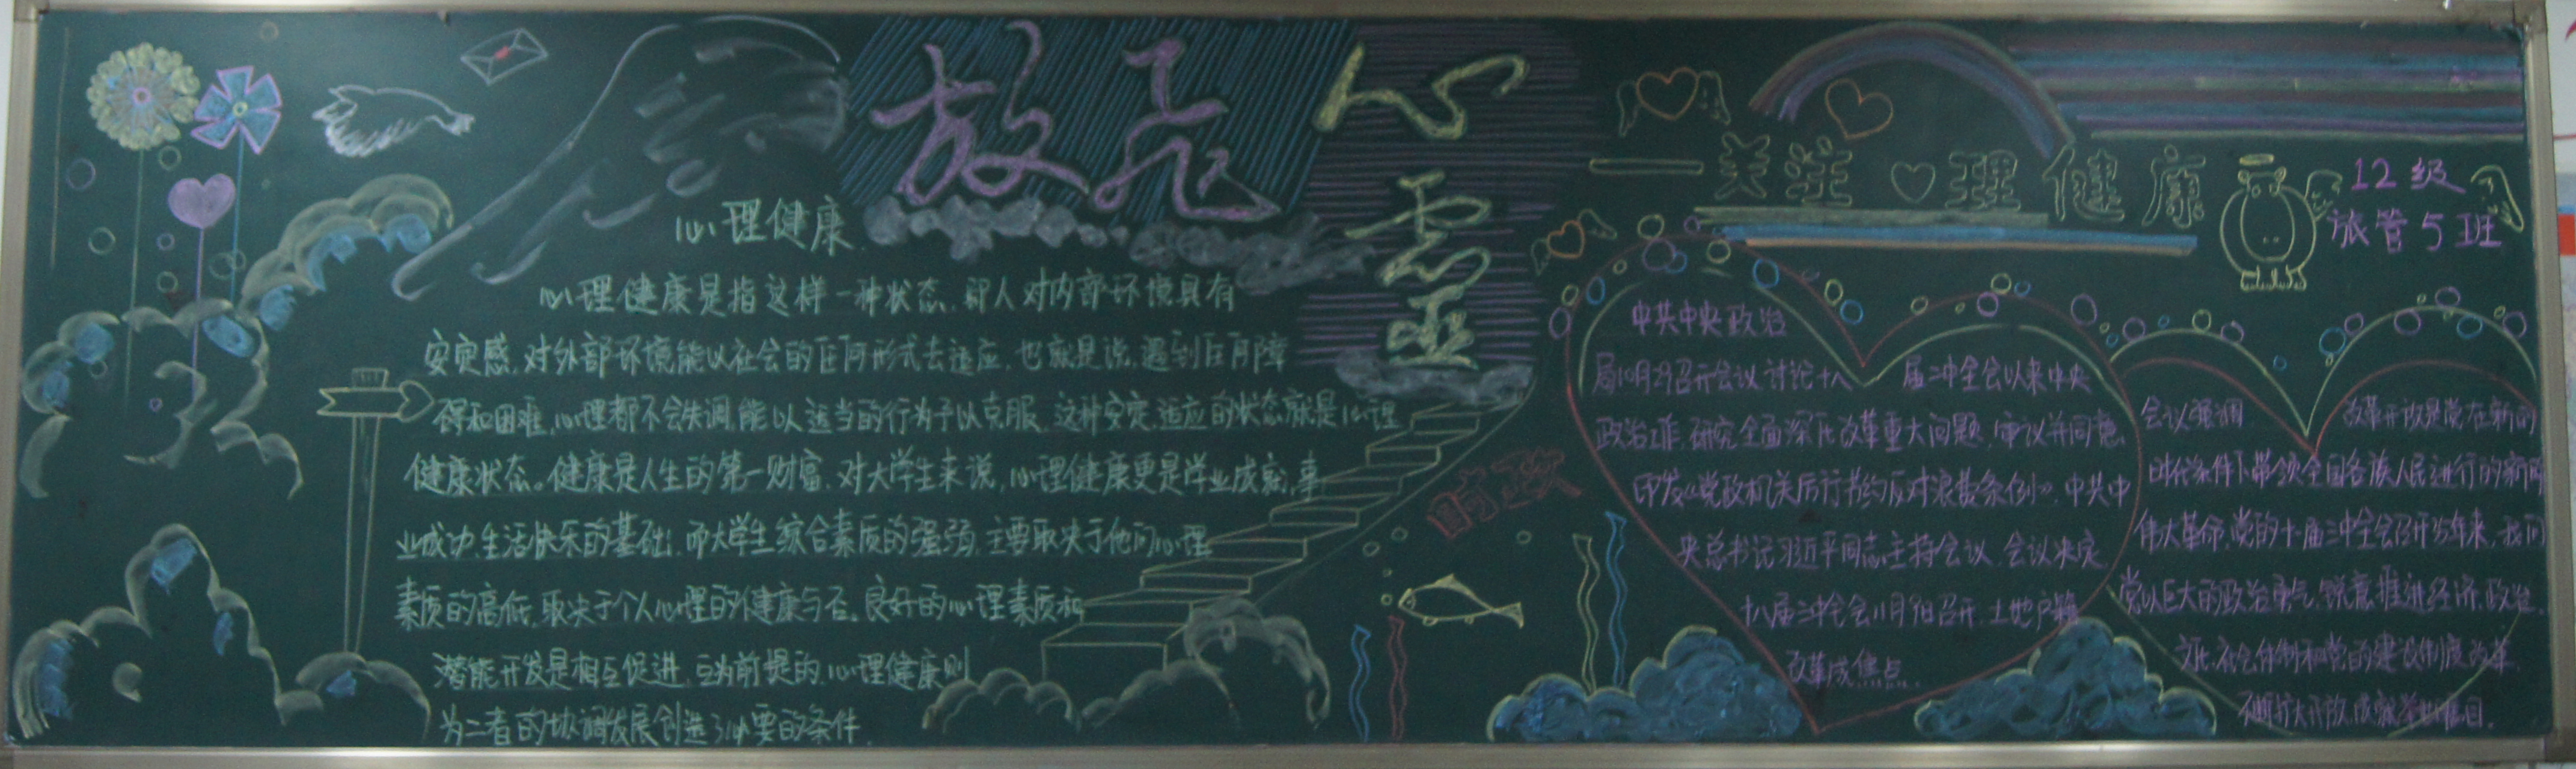 放飞
心灵
——关注心理健康
12级
旅管5班
心理健康
心理健康是指这样一种状态,即人对内部环境具有
安定感,对外部环境能以社会的任何形式去适应,也就是说,遇到任何障
碍和困难,心理都不会失调,能以适当的行为予以克服,这种安定、适应的状态就是心理
健康状态。健康是人生的第一财富,对大学生来说,心理健康更是学业成就,事
业成功,生活快乐的基础,而大学生综合素质的强弱,主要取决于他们心理
素质的高低,取决于个人心理的健康与否。良好的心理素质和
潜能开发是相互促进,互为前提的,心理健康则
为二者的协调发展创造了必要的条件.
时政
中共中央政治
局10月29召开会议讨论十八届三中全会以来中央
政治工作,研究全面深化改革重大问题,审议并同意
印发《党政机关厉行节约反对浪费条例》.中共中
央总书记习近平同志主持会议.会议决定
十八届三中全会11月9召开.土地户籍
改革成焦点.
会议强调 改革开放是党在新的
时代条件下带领全国各族人民进行的新的
伟大革命,党的十届三中全会召开35年来,我们
党以巨大的政治勇气,锐意推进经济,政治,
文化,社会体制和党的建设制度改革,
不断扩大开放,成就举世瞩目.